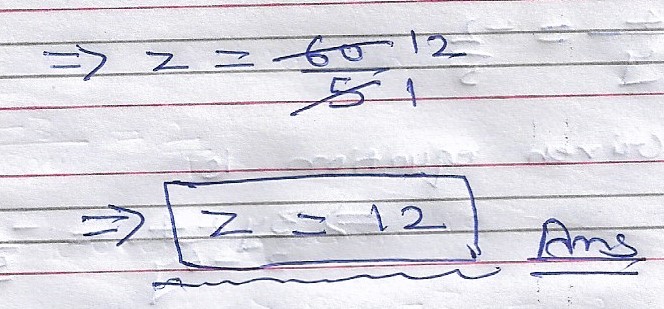 ⇒ z = 60 12
5 1
⇒ z = 12 Ans